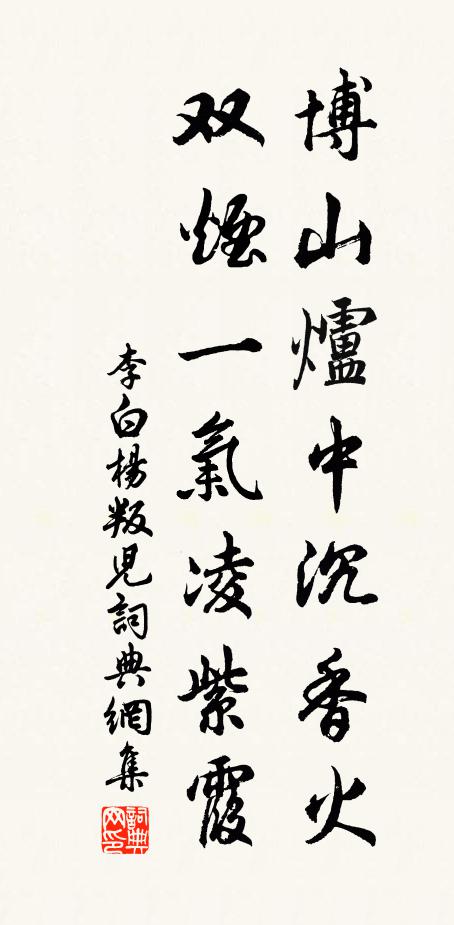 博山爐中沉香火
双煙一氣凌紫霞
李白楊叛児詞典網集
詞典网印